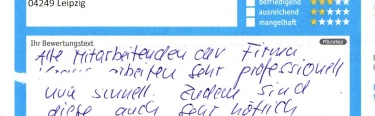 04249 Leipzig
befriedigend
ausreichend
mangelhaft
Ihr Bewertungstext
Pflichtfeld
Alle Mitarbeitenden der Firma
arbeiten sehr professionell
und schnell. Zudem sind
diese auch sehr höflich